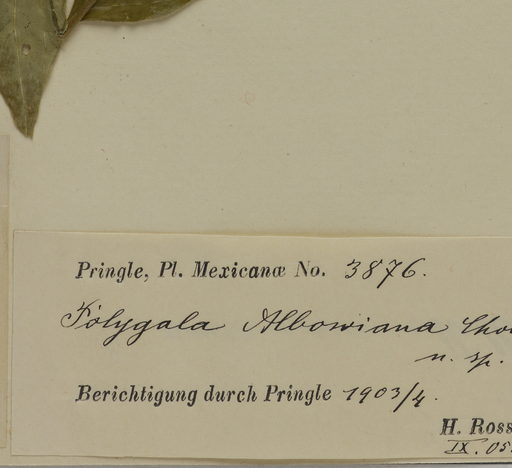 Pringle, Pl. Mexicanæ No. 3876.
Polygala Albowiana Cho
n. sp.
Berichtigung durch Pringle 1903/4.
H. Ross
IX. 05.